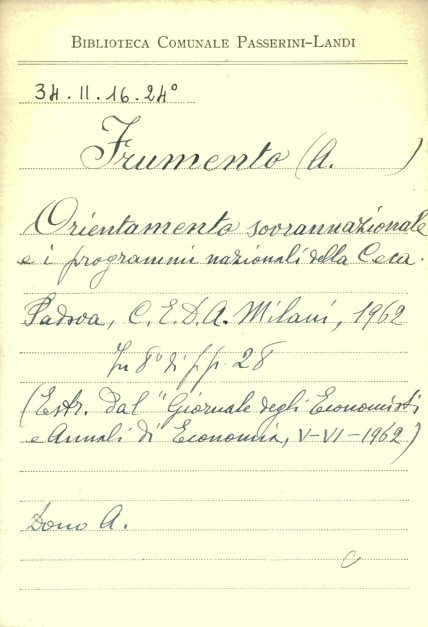 BIBLIOTECA COMUNALE PASSERINI-LANDI
34.II.16.24°
Frumento (A. )
Orientamento sovrannazionale
e i programmi nazionali della Ceca.
Padova, C.E.D.A. Milani, 1962
In 8° di pp. 28
(Estr. dal "Giornale degli Economisti
e Annali di Economia, V-VI-1962)
Dono A.
C